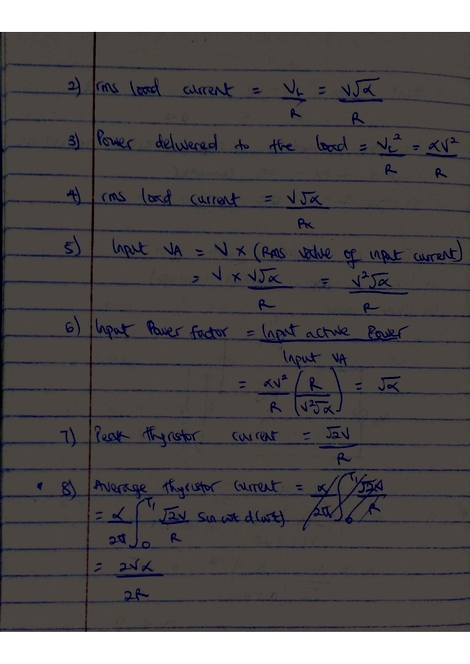 2) rms load current = V_L / R = V√α / R
3) Power delivered to the load = V_L² / R = αV² / R
4) rms load current = V√α / Rx
5) Input VA = V × (Rms value of input current)
= V × V√α / R = V²√α / R
6) Input Power factor = Input active Power / Input VA
= αV² / R (R / V²√α) = √α
7) Peak thyristor current = √2V / R
8) Average thyristor current =
= α / 2π ∫₀ √2V / R sin wt d(wt)
= 2Vα / 2R